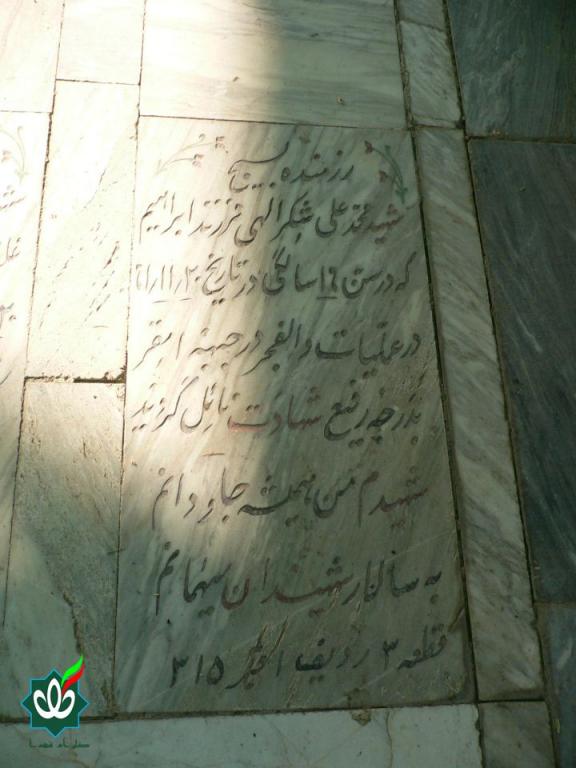 رزمنده بسیج
شهید محمد علی شکرالهی فرزند ابراهیم
که در سن ۱۶ سالگی در تاریخ ۶۱/۱۱/۲۰
در عملیات والفجر در جبهه
بدرجه رفیع شهادت نائل گردید
شهیدم من همیشه جاودانم
به سالار شهیدان میهمانم
قطعه ۳ ردیف ۱ قبر ۳۱۵